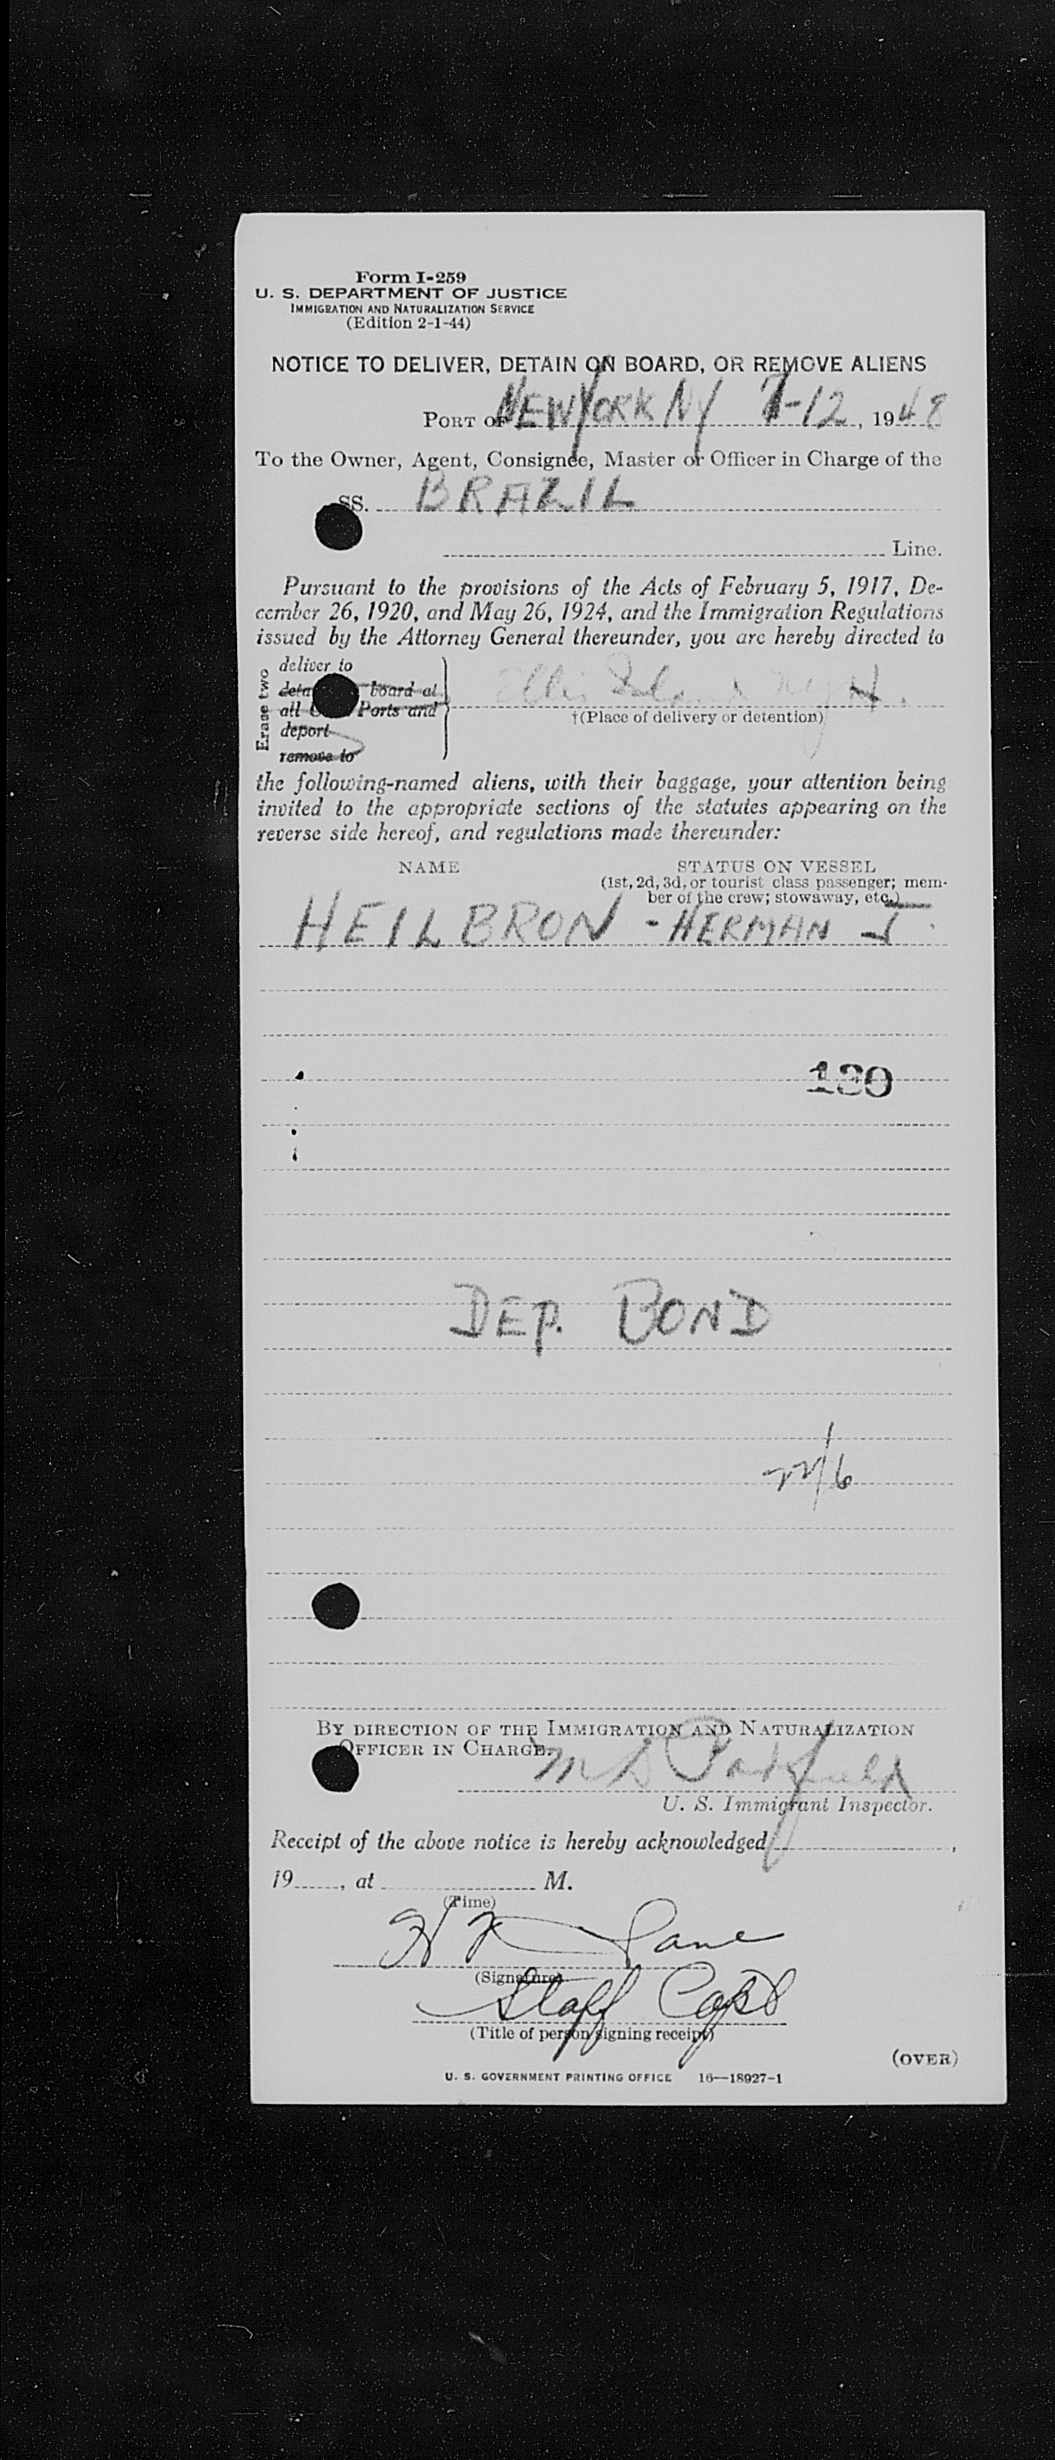 Form I-259
U. S. DEPARTMENT OF JUSTICE
IMMIGRATION AND NATURALIZATION SERVICE
(Edition 2-1-44)
NOTICE TO DELIVER, DETAIN ON BOARD, OR REMOVE ALIENS
PORT OF NEW YORK NY 7-12, 1948
To the Owner, Agent, Consignee, Master or Officer in Charge of the
SS. BRAZIL
Line.
Pursuant to the provisions of the Acts of February 5, 1917, De-
cember 26, 1920, and May 26, 1924, and the Immigration Regulations
issued by the Attorney General thereunder, you are hereby directed to
Erase two
deliver to
board at
all Ports and
deport
remove to
Ellis Island NY H.
†(Place of delivery or detention)
the following-named aliens, with their baggage, your attention being
invited to the appropriate sections of the statutes appearing on the
reverse side hereof, and regulations made thereunder:
NAME STATUS ON VESSEL
(1st, 2d, 3d, or tourist class passenger; mem-
ber of the crew; stowaway, etc.)
HEILBRON - HERMAN J
130
DEP. BOND
BY DIRECTION OF THE IMMIGRATION AND NATURALIZATION
OFFICER IN CHARGE.
U. S. Immigrant Inspector.
Receipt of the above notice is hereby acknowledged ,
19 , at M.
(Time)
(Signature)
Staff Capt
(Title of person signing receipt)
(OVER)
U. S. GOVERNMENT PRINTING OFFICE 16—18927-1